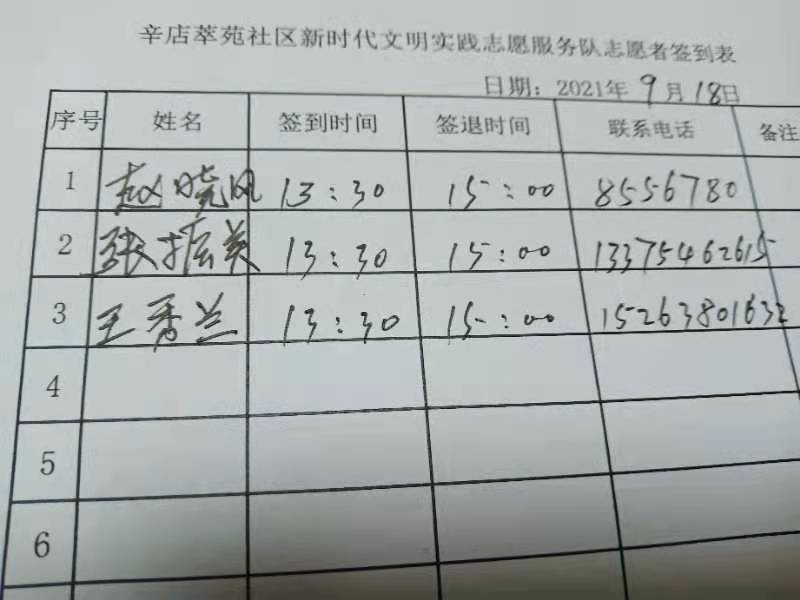 辛店萃苑社区新时代文明实践志愿服务队志愿者签到表
日期：2021年 9月 18日
序号 姓名 签到时间 签退时间 联系电话 备注
1 赵晓风 13:30 15:00 8556780
2 张振美 13:30 15:00 13375462615
3 王秀兰 13:30 15:00 15263801632
4
5
6